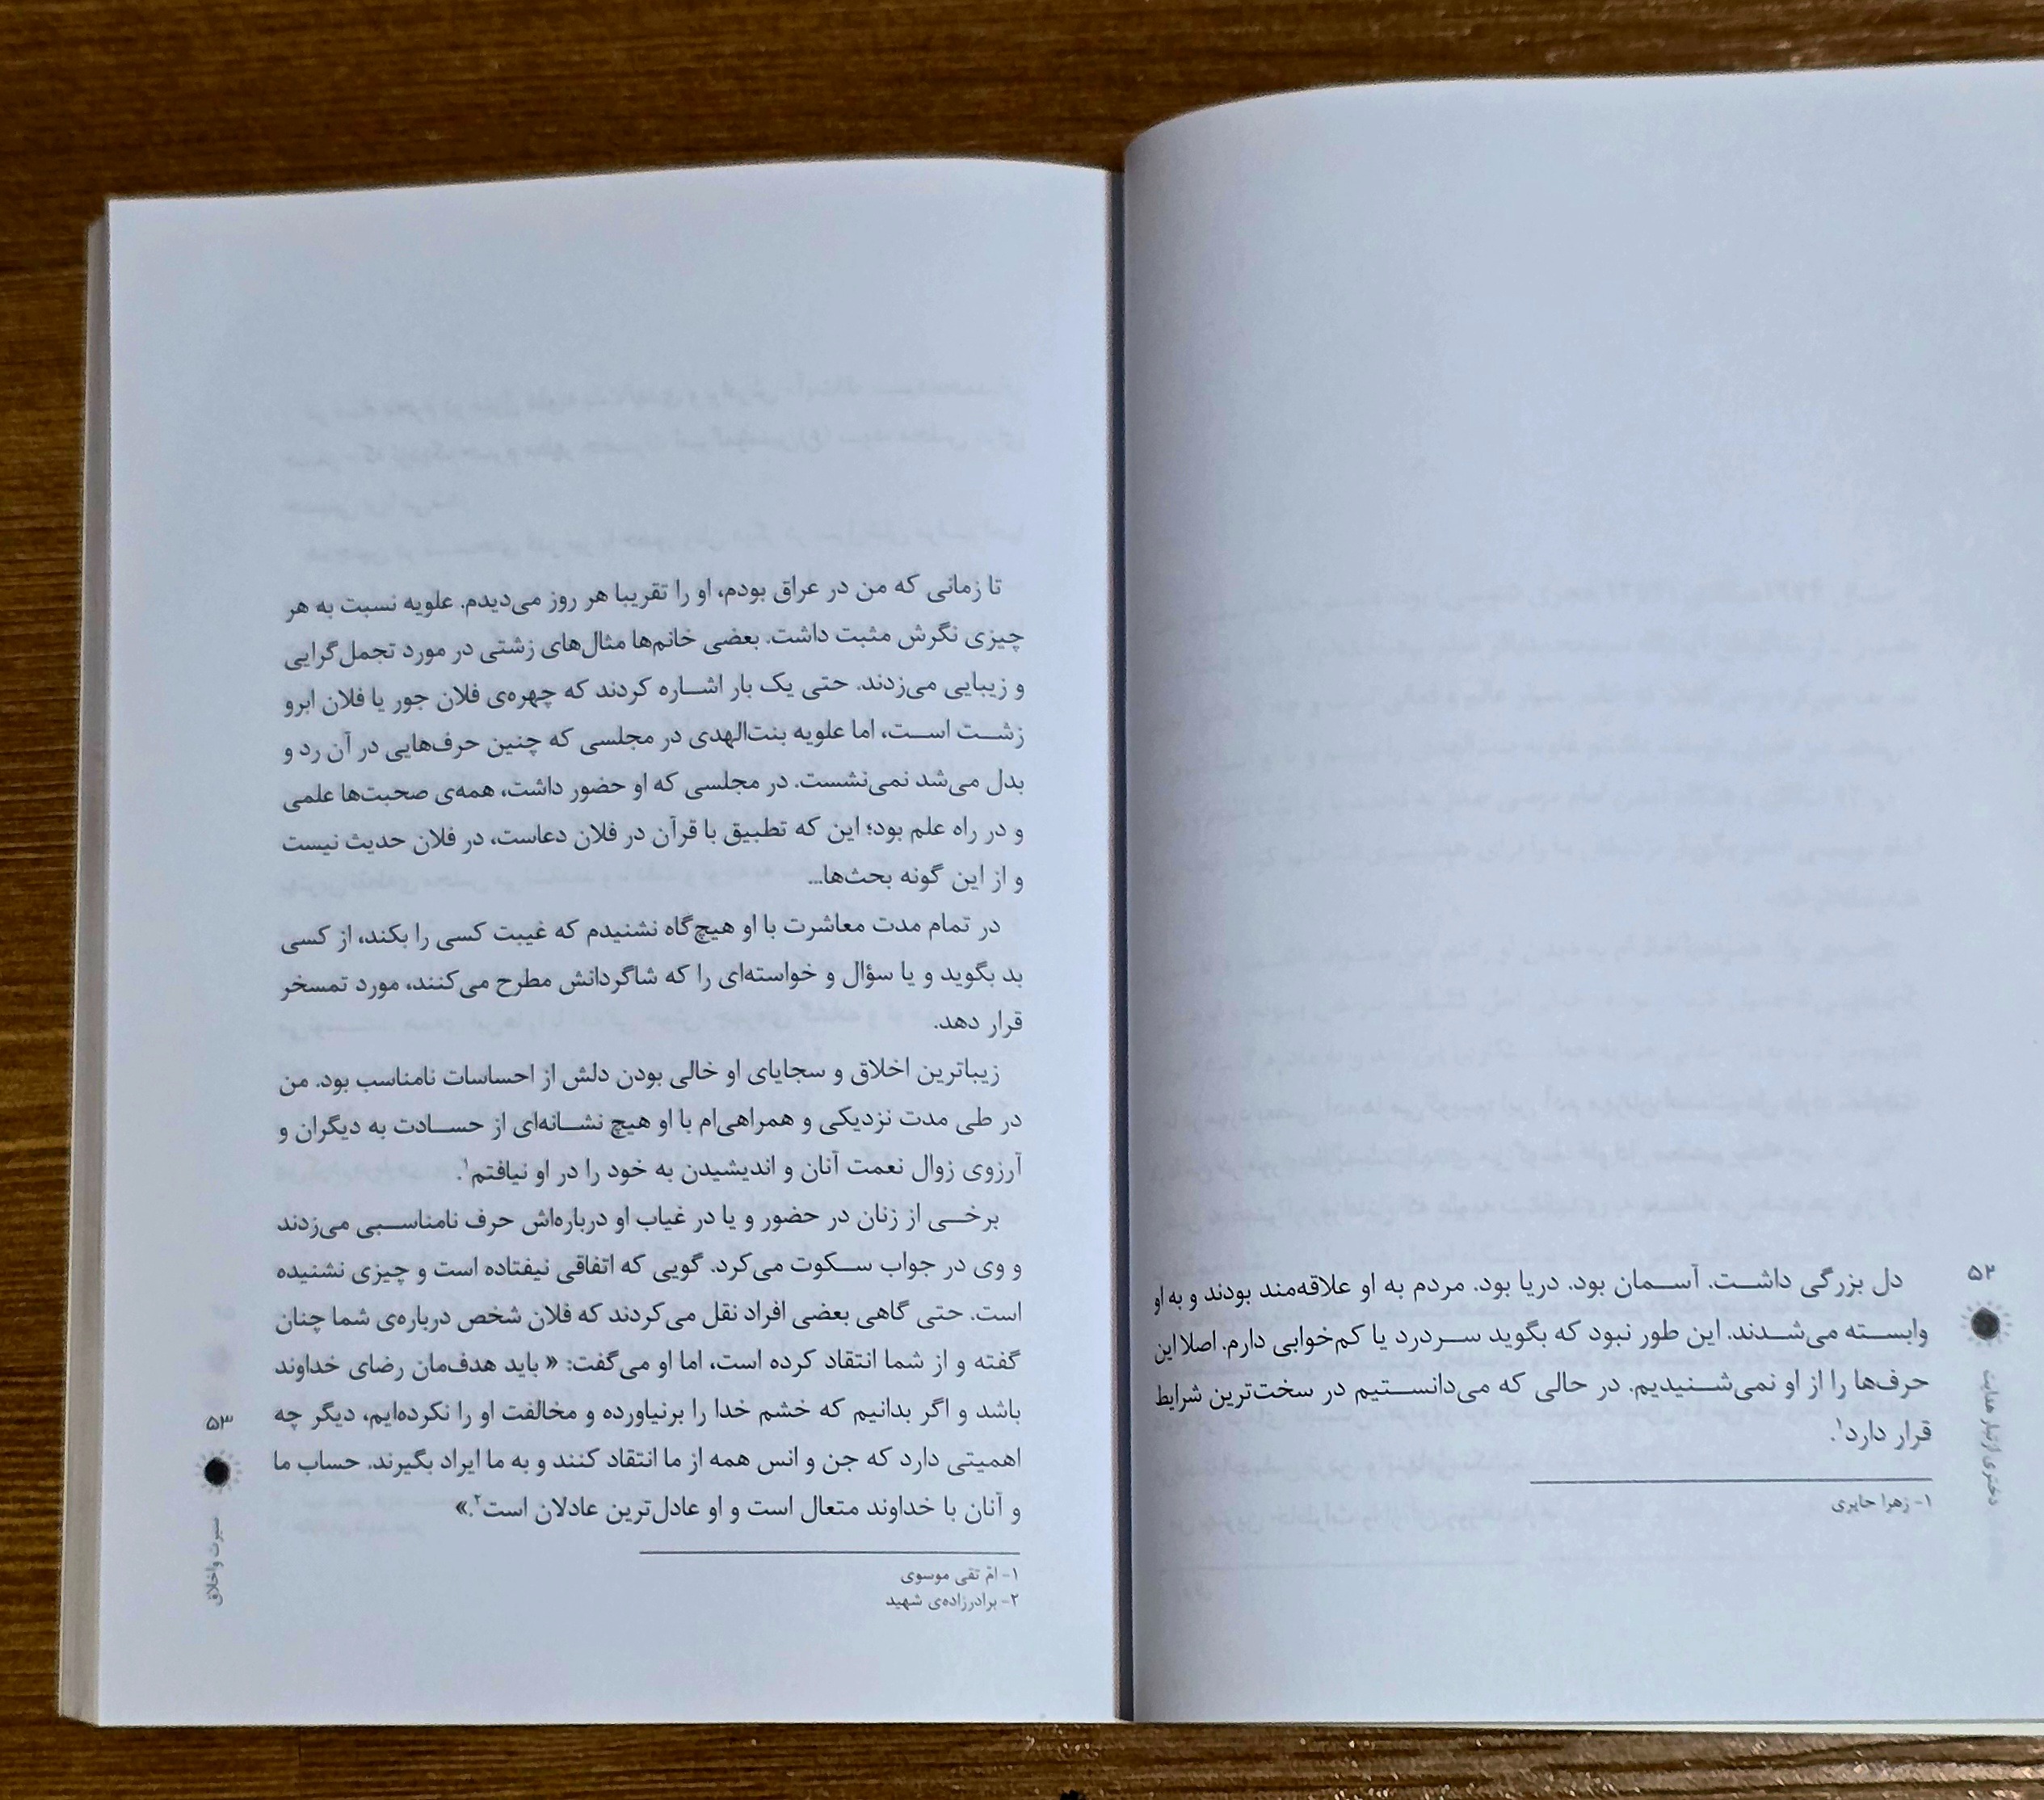 دل بزرگی داشت. آسمان بود. دریا بود. مردم به او علاقه‌مند بودند و به او
وابسته می‌شدند. این طور نبود که بگوید سردرد یا کم‌خوابی دارم. اصلا این
حرف‌ها را از او نمی‌شنیدیم. در حالی که می‌دانستیم در سخت‌ترین شرایط
قرار دارد۱.
۱- زهرا حایری
۵۲
دختری از تبار هدایت
تا زمانی که من در عراق بودم، او را تقریبا هر روز می‌دیدم. علویه نسبت به هر
چیزی نگرش مثبت داشت. بعضی خانم‌ها مثال‌های زشتی در مورد تجمل‌گرایی
و زیبایی می‌زدند. حتی یک بار اشاره کردند که چهره‌ی فلان جور یا فلان ابرو
زشت است، اما علویه بنت‌الهدی در مجلسی که چنین حرف‌هایی در آن رد و
بدل می‌شد نمی‌نشست. در مجلسی که او حضور داشت، همه‌ی صحبت‌ها علمی
و در راه علم بود؛ این که تطبیق با قرآن در فلان دعاست، در فلان حدیث نیست
و از این گونه بحث‌ها...
در تمام مدت معاشرت با او هیچ‌گاه نشنیدم که غیبت کسی را بکند، از کسی
بد بگوید و یا سؤال و خواسته‌ای را که شاگردانش مطرح می‌کنند، مورد تمسخر
قرار دهد.
زیباترین اخلاق و سجایای او خالی بودن دلش از احساسات نامناسب بود. من
در طی مدت نزدیکی و همراهی‌ام با او هیچ نشانه‌ای از حسادت به دیگران و
آرزوی زوال نعمت آنان و اندیشیدن به خود را در او نیافتم۱.
برخی از زنان در حضور و یا در غیاب او درباره‌اش حرف نامناسبی می‌زدند
و وی در جواب سکوت می‌کرد. گویی که اتفاقی نیفتاده است و چیزی نشنیده
است. حتی گاهی بعضی افراد نقل می‌کردند که فلان شخص درباره‌ی شما چنان
گفته و از شما انتقاد کرده است، اما او می‌گفت: « باید هدف‌مان رضای خداوند
باشد و اگر بدانیم که خشم خدا را برنیاورده و مخالفت او را نکرده‌ایم، دیگر چه
اهمیتی دارد که جن و انس همه از ما انتقاد کنند و به ما ایراد بگیرند. حساب ما
و آنان با خداوند متعال است و او عادل‌ترین عادلان است۲.»
۱- امّ تقی موسوی
۲- برادرزاده‌ی شهید
۵۳
سیرت و اخلاق